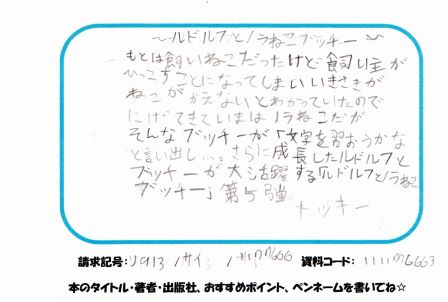 ～ルドルフとノラねこブッチー～
もとは飼いねこだったけど飼い主が
ひっこすことになってしまいいきさきが
ねこがかえないとわかっていたので
にげてきていまはノラねこだが
そんなブッチーが「文字を習おうかな
と言い出し…。さらに成長したルドルフと
ブッチーが大活躍する『ルドルフとノラねこ
ブッチー』第5弾。
トッキー
請求記号: リ913 /サイ 資料コード:
本のタイトル・著者・出版社、おすすめポイント、ペンネームを書いてね☆